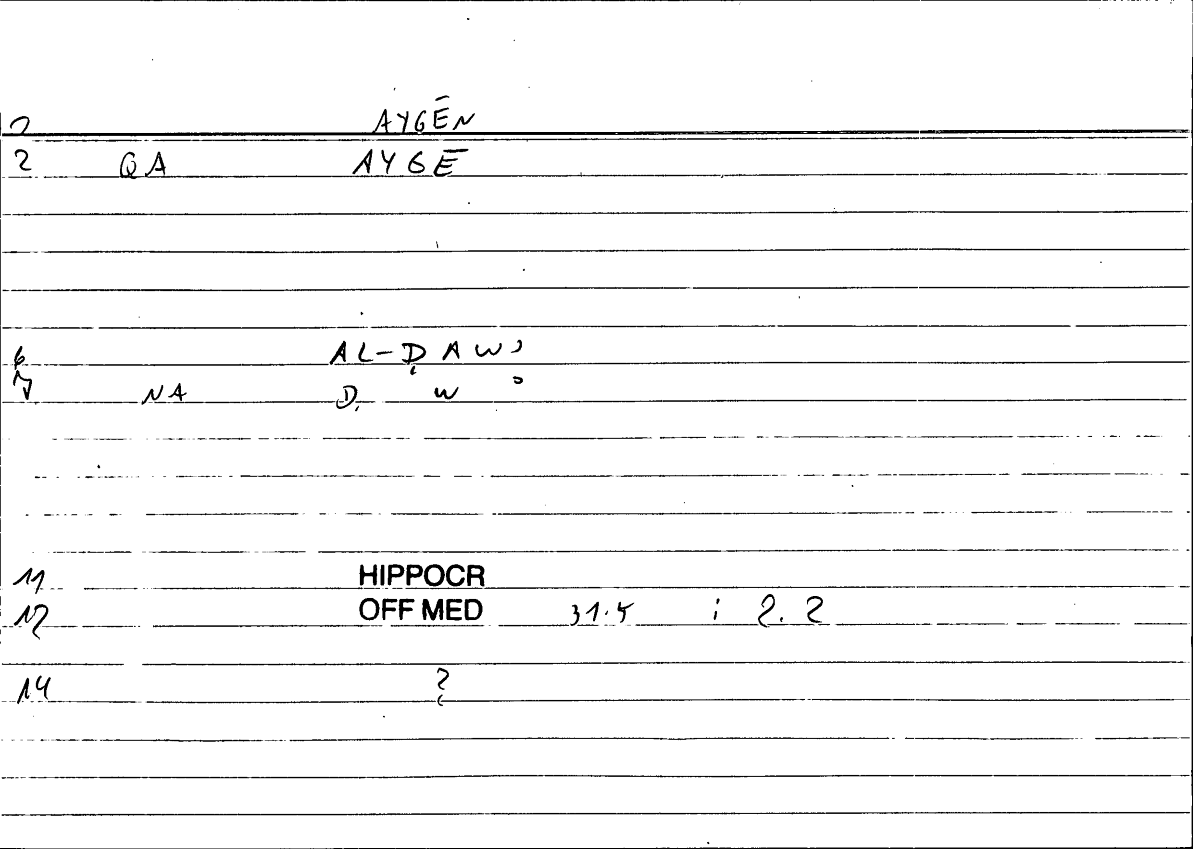 2 AYGĒN
2 QA AYGĒ
6 AL-ḌAWʾ
7 NA Ḍ W ʾ
11 HIPPOCR
12 OFF MED 31.5 ; 2.2
14